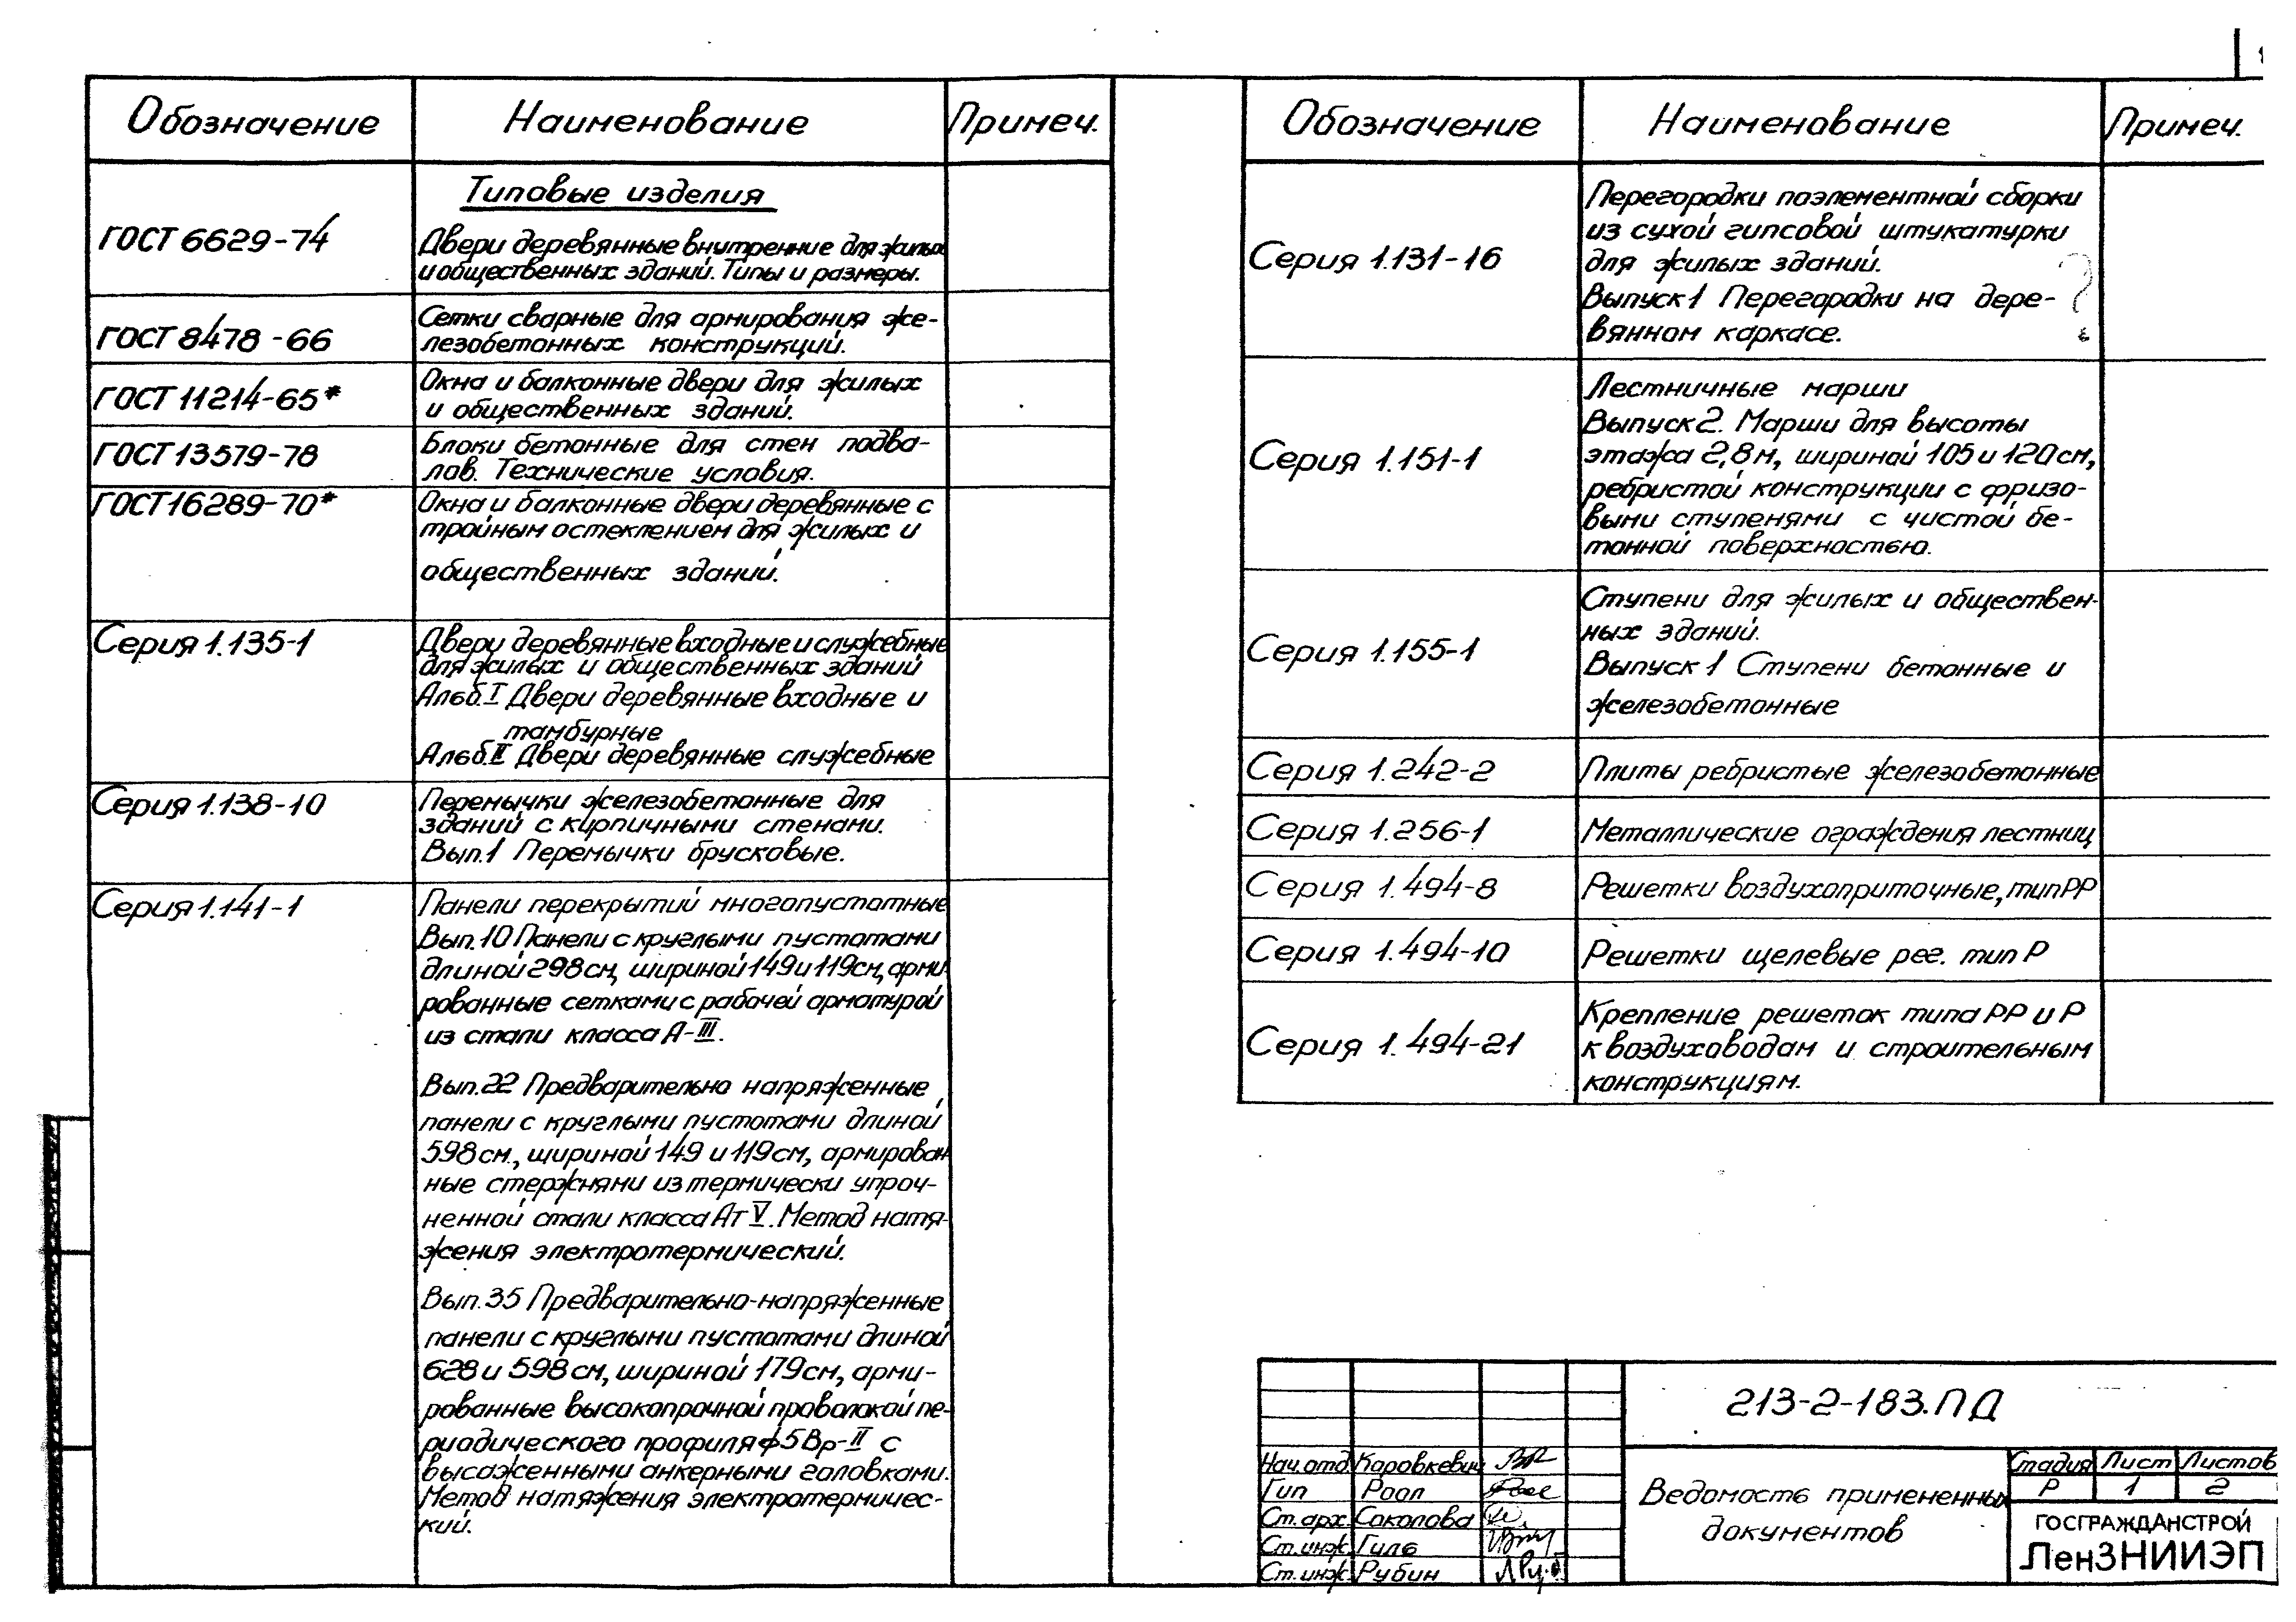 Обозначение Наименование Примеч.
Типовые изделия
ГОСТ 6629-74
Двери деревянные внутренние для жилых
и общественных зданий. Типы и размеры.
ГОСТ 8478-66
Сетки сварные для армирования же-
лезобетонных конструкций.
ГОСТ 11214-65*
Окна и балконные двери для жилых
и общественных зданий.
ГОСТ 13579-78
Блоки бетонные для стен подва-
лов. Технические условия.
ГОСТ 16289-70*
Окна и балконные двери деревянные с
тройным остеклением для жилых и
общественных зданий.
Серия 1.135-1
Двери деревянные входные и служебные
для жилых и общественных зданий
Альб. I Двери деревянные входные и
тамбурные
Альб. II Двери деревянные служебные
Серия 1.138-10
Перемычки железобетонные для
зданий с кирпичными стенами.
Вып.1 Перемычки брусковые.
Серия 1.141-1
Панели перекрытий многопустотные
Вып.10 Панели с круглыми пустотами
длиной 298см, шириной 149 и 119см, арми-
рованные сетками с рабочей арматурой
из стали класса А-III.
Вып.22 Предварительно напряженные
панели с круглыми пустотами длиной
598см., шириной 149 и 119см, армирован
ные стержнями из термически упроч-
ненной стали класса Ат V. Метод натя-
жения электротермический.
Вып.35 Предварительно-напряженные
панели с круглыми пустотами длиной
628 и 598см, шириной 179см, арми-
рованные высокопрочной проволокой пе-
риодического профиля ф5Вр-II с
высаженными анкерными головками.
Метод натяжения электротермичес-
кий.
Обозначение Наименование Примеч.
Серия 1.131-16
Перегородки поэлементной сборки
из сухой гипсовой штукатурки
для жилых зданий.
Выпуск 1 Перегородки на дере-
вянном каркасе.
?
Серия 1.151-1
Лестничные марши
Выпуск 2. Марши для высоты
этажа 2,8м, шириной 105 и 120см,
ребристой конструкции с фризо-
выми ступенями с чистой бе-
тонной поверхностью.
Серия 1.155-1
Ступени для жилых и обществен-
ных зданий.
Выпуск 1 Ступени бетонные и
железобетонные
Серия 1.242-2 Плиты ребристые железобетонные
Серия 1.256-1 Металлические ограждения лестниц
Серия 1.494-8 Решетки воздухоприточные, тип РР
Серия 1.494-10 Решетки щелевые рег. тип Р
Серия 1.494-21
Крепление решеток типа РР и Р
к воздуховодам и строительным
конструкциям.
213-2-183.ПД
Нач.отд. Коровкевич
Гип Роол
Ст.арх. Соколова
Ст.инж. Гиль
Ст.инж. Рубин
Ведомость примененных
документов
Стадия Лист Листов
Р 1 2
ГОСГРАЖДАНСТРОЙ
ЛенЗНИИЭП